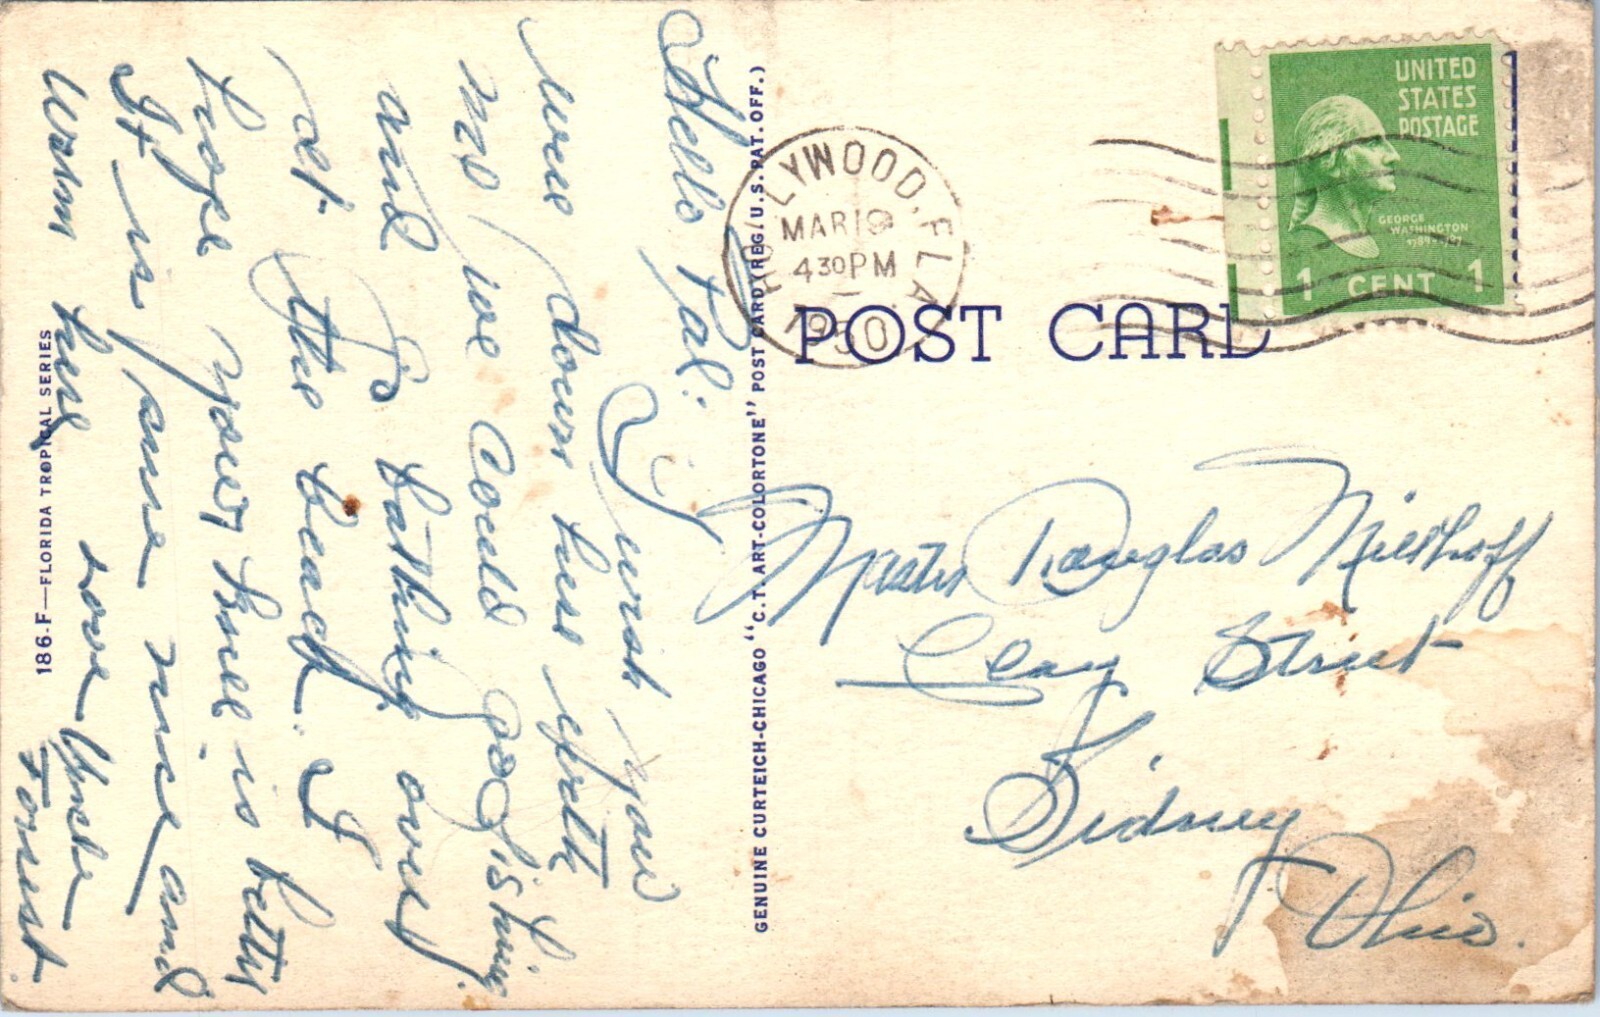 Hello Pal:
I wish you
were down here with
me / we could go fishing
and to bathing over
at the beach. I
hope your knee is better
It is sure nice and
warm here love Uncle
Forest.
186-F—FLORIDA TROPICAL SERIES
GENUINE CURTEICH-CHICAGO "C.T. ART-COLORTONE" POST CARD (REG. U.S. PAT. OFF.)
HOLLYWOOD, FLA.
MAR 19
4 30 PM
1950
UNITED
STATES
POSTAGE
GEORGE
WASHINGTON
1789-1797
1 CENT 1
POST CARD
Master Douglas Millhoff
Clay Street
Sidney
Ohio.